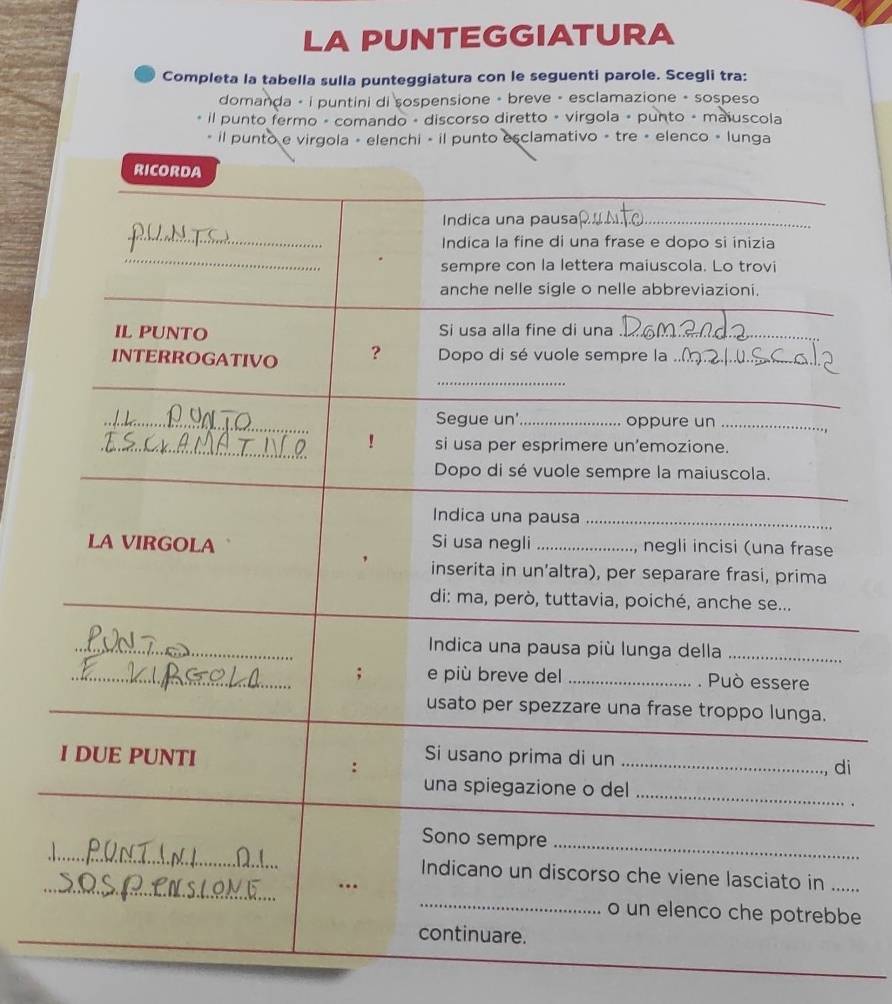 LA PUNTEGGIATURA
Completa la tabella sulla punteggiatura con le seguenti parole. Scegli tra:
domanda • i puntini di sospensione • breve • esclamazione • sospeso
• il punto fermo • comando • discorso diretto • virgola • punto • maiuscola
• il punto e virgola • elenchi • il punto esclamativo • tre • elenco • lunga
RICORDA
PUNTO
.
Indica una pausa punto
Indica la fine di una frase e dopo si inizia
sempre con la lettera maiuscola. Lo trovi
anche nelle sigle o nelle abbreviazioni.
IL PUNTO
INTERROGATIVO
?
Si usa alla fine di una Domanda
Dopo di sé vuole sempre la maiuscola
IL PUNTO
ESCLAMATIVO
!
Segue un'........ oppure un ........,
si usa per esprimere un'emozione.
Dopo di sé vuole sempre la maiuscola.
LA VIRGOLA
,
Indica una pausa ........
Si usa negli ........, negli incisi (una frase
inserita in un'altra), per separare frasi, prima
di: ma, però, tuttavia, poiché, anche se...
PUNTO
E VIRGOLA
;
Indica una pausa più lunga della ........
e più breve del ........ . Può essere
usato per spezzare una frase troppo lunga.
I DUE PUNTI
:
Si usano prima di un ........, di
una spiegazione o del ........ .
I PUNTINI DI
SOSPENSIONE
...
Sono sempre ........
Indicano un discorso che viene lasciato in ......
........ o un elenco che potrebbe
continuare.